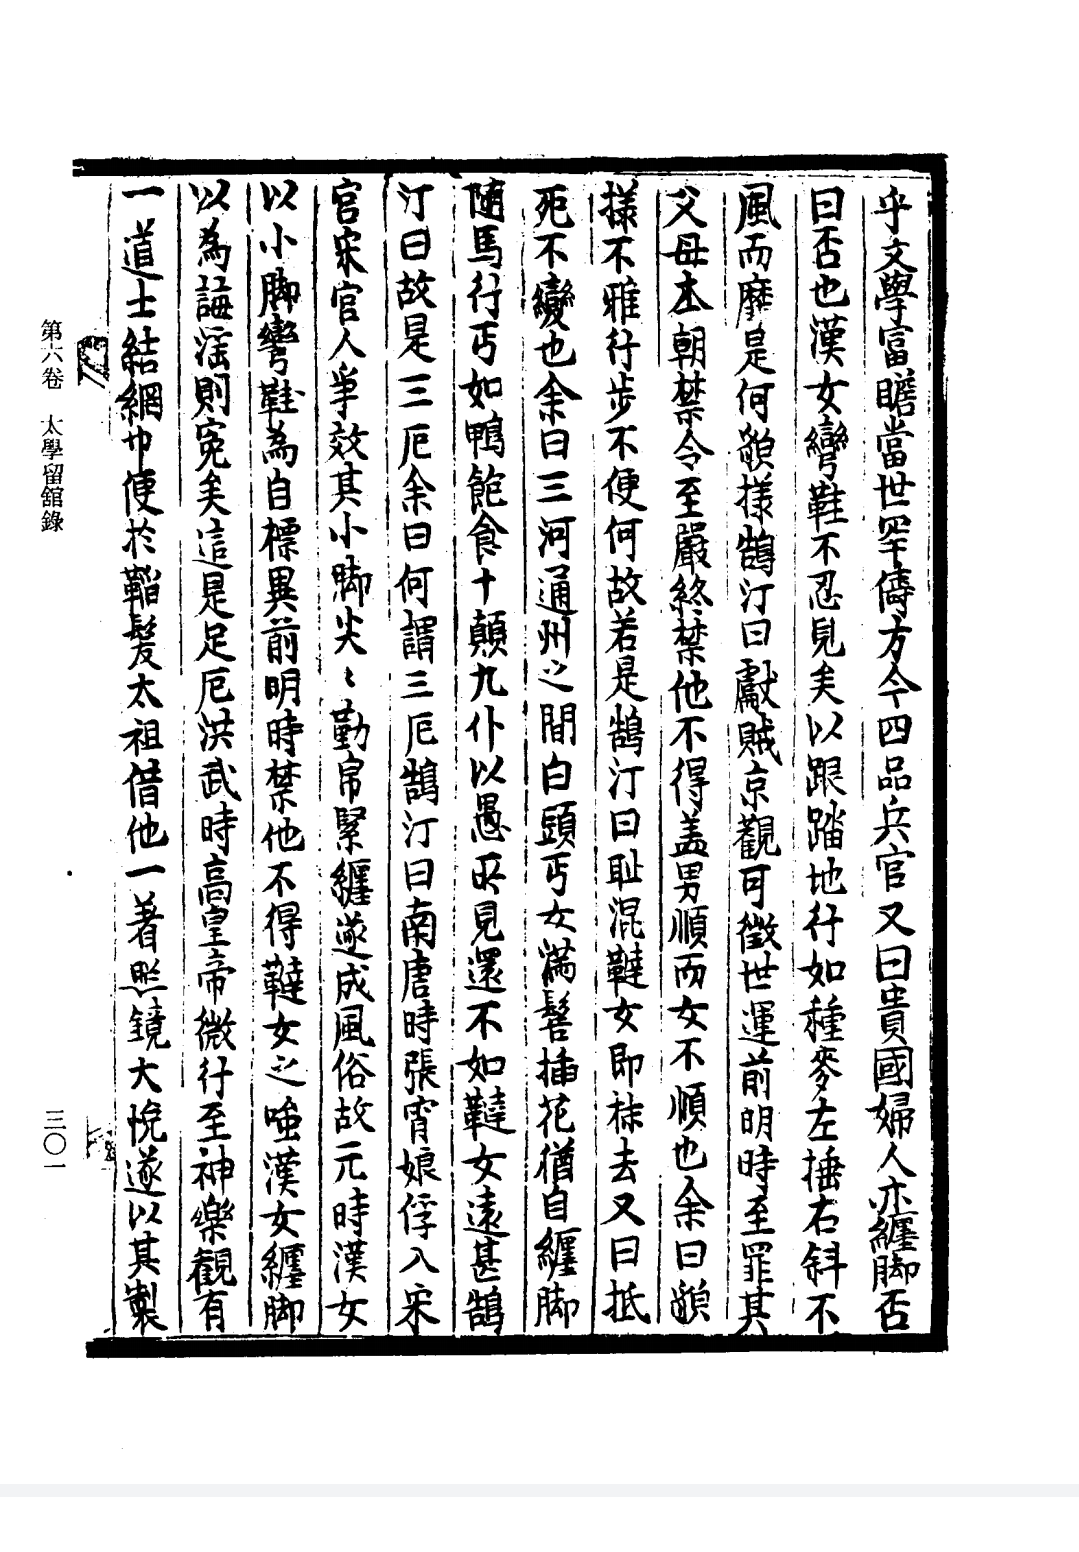 乎文學富贍當世罕儔方今四品兵官又曰貴國婦人亦纏脚否
曰否也漢女彎鞋不忍見矣以跟踏地行如種麥左捶右斜不
風而靡是何貌樣鵠汀曰獻賊京觀可徵世運前明時至罪其
父母本朝禁令至嚴終禁他不得盖男順而女不順也余曰貌
樣不雅行步不便何故若是鵠汀曰恥混韃女即抹去又曰抵
死不變也余曰三河通州之間白頭丐女滿髻插花猶自纏脚
随馬行丐如鴨飽食十顛九仆以愚所見還不如韃女遠甚鵠
汀曰故是三厄余曰何謂三厄鵠汀曰南唐時張宵娘俘入宋
宮宋宮人爭效其小脚尖〻勒帛緊纏遂成風俗故元時漢女
以小脚彎鞋為自標異前明時禁他不得韃女之嗤漢女纏脚
以為誨淫則寃矣這是足厄洪武時高皇帝微行至神樂觀有
一道士結網巾便於韜髮太祖借他一著照鏡大悅遂以其製
第六卷 太學留館錄
三〇一